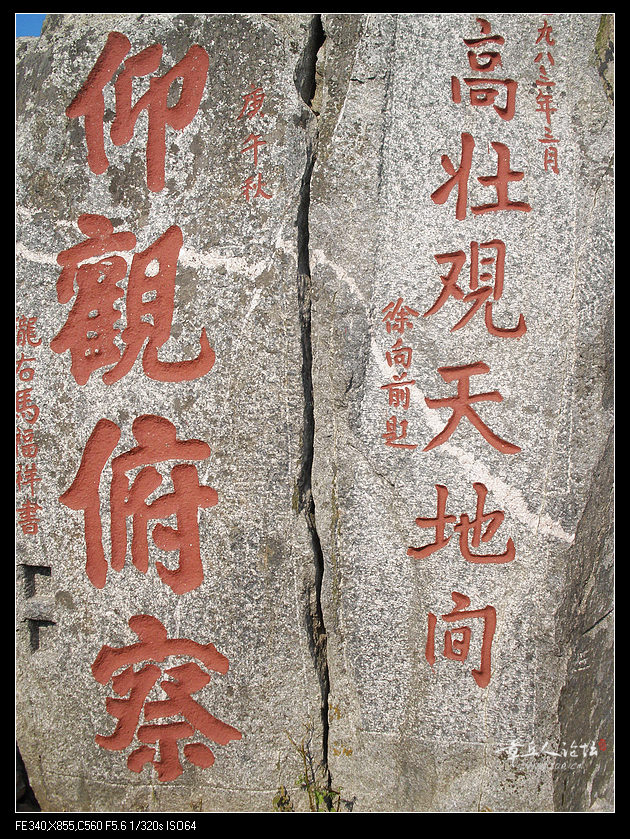 一九八三年三月
高壮观天地间
徐向前题
庚午秋
仰觀俯察
隴右馬福祥書
章丘人论坛
FE340,X855,C560 F5.6 1/320s ISO64